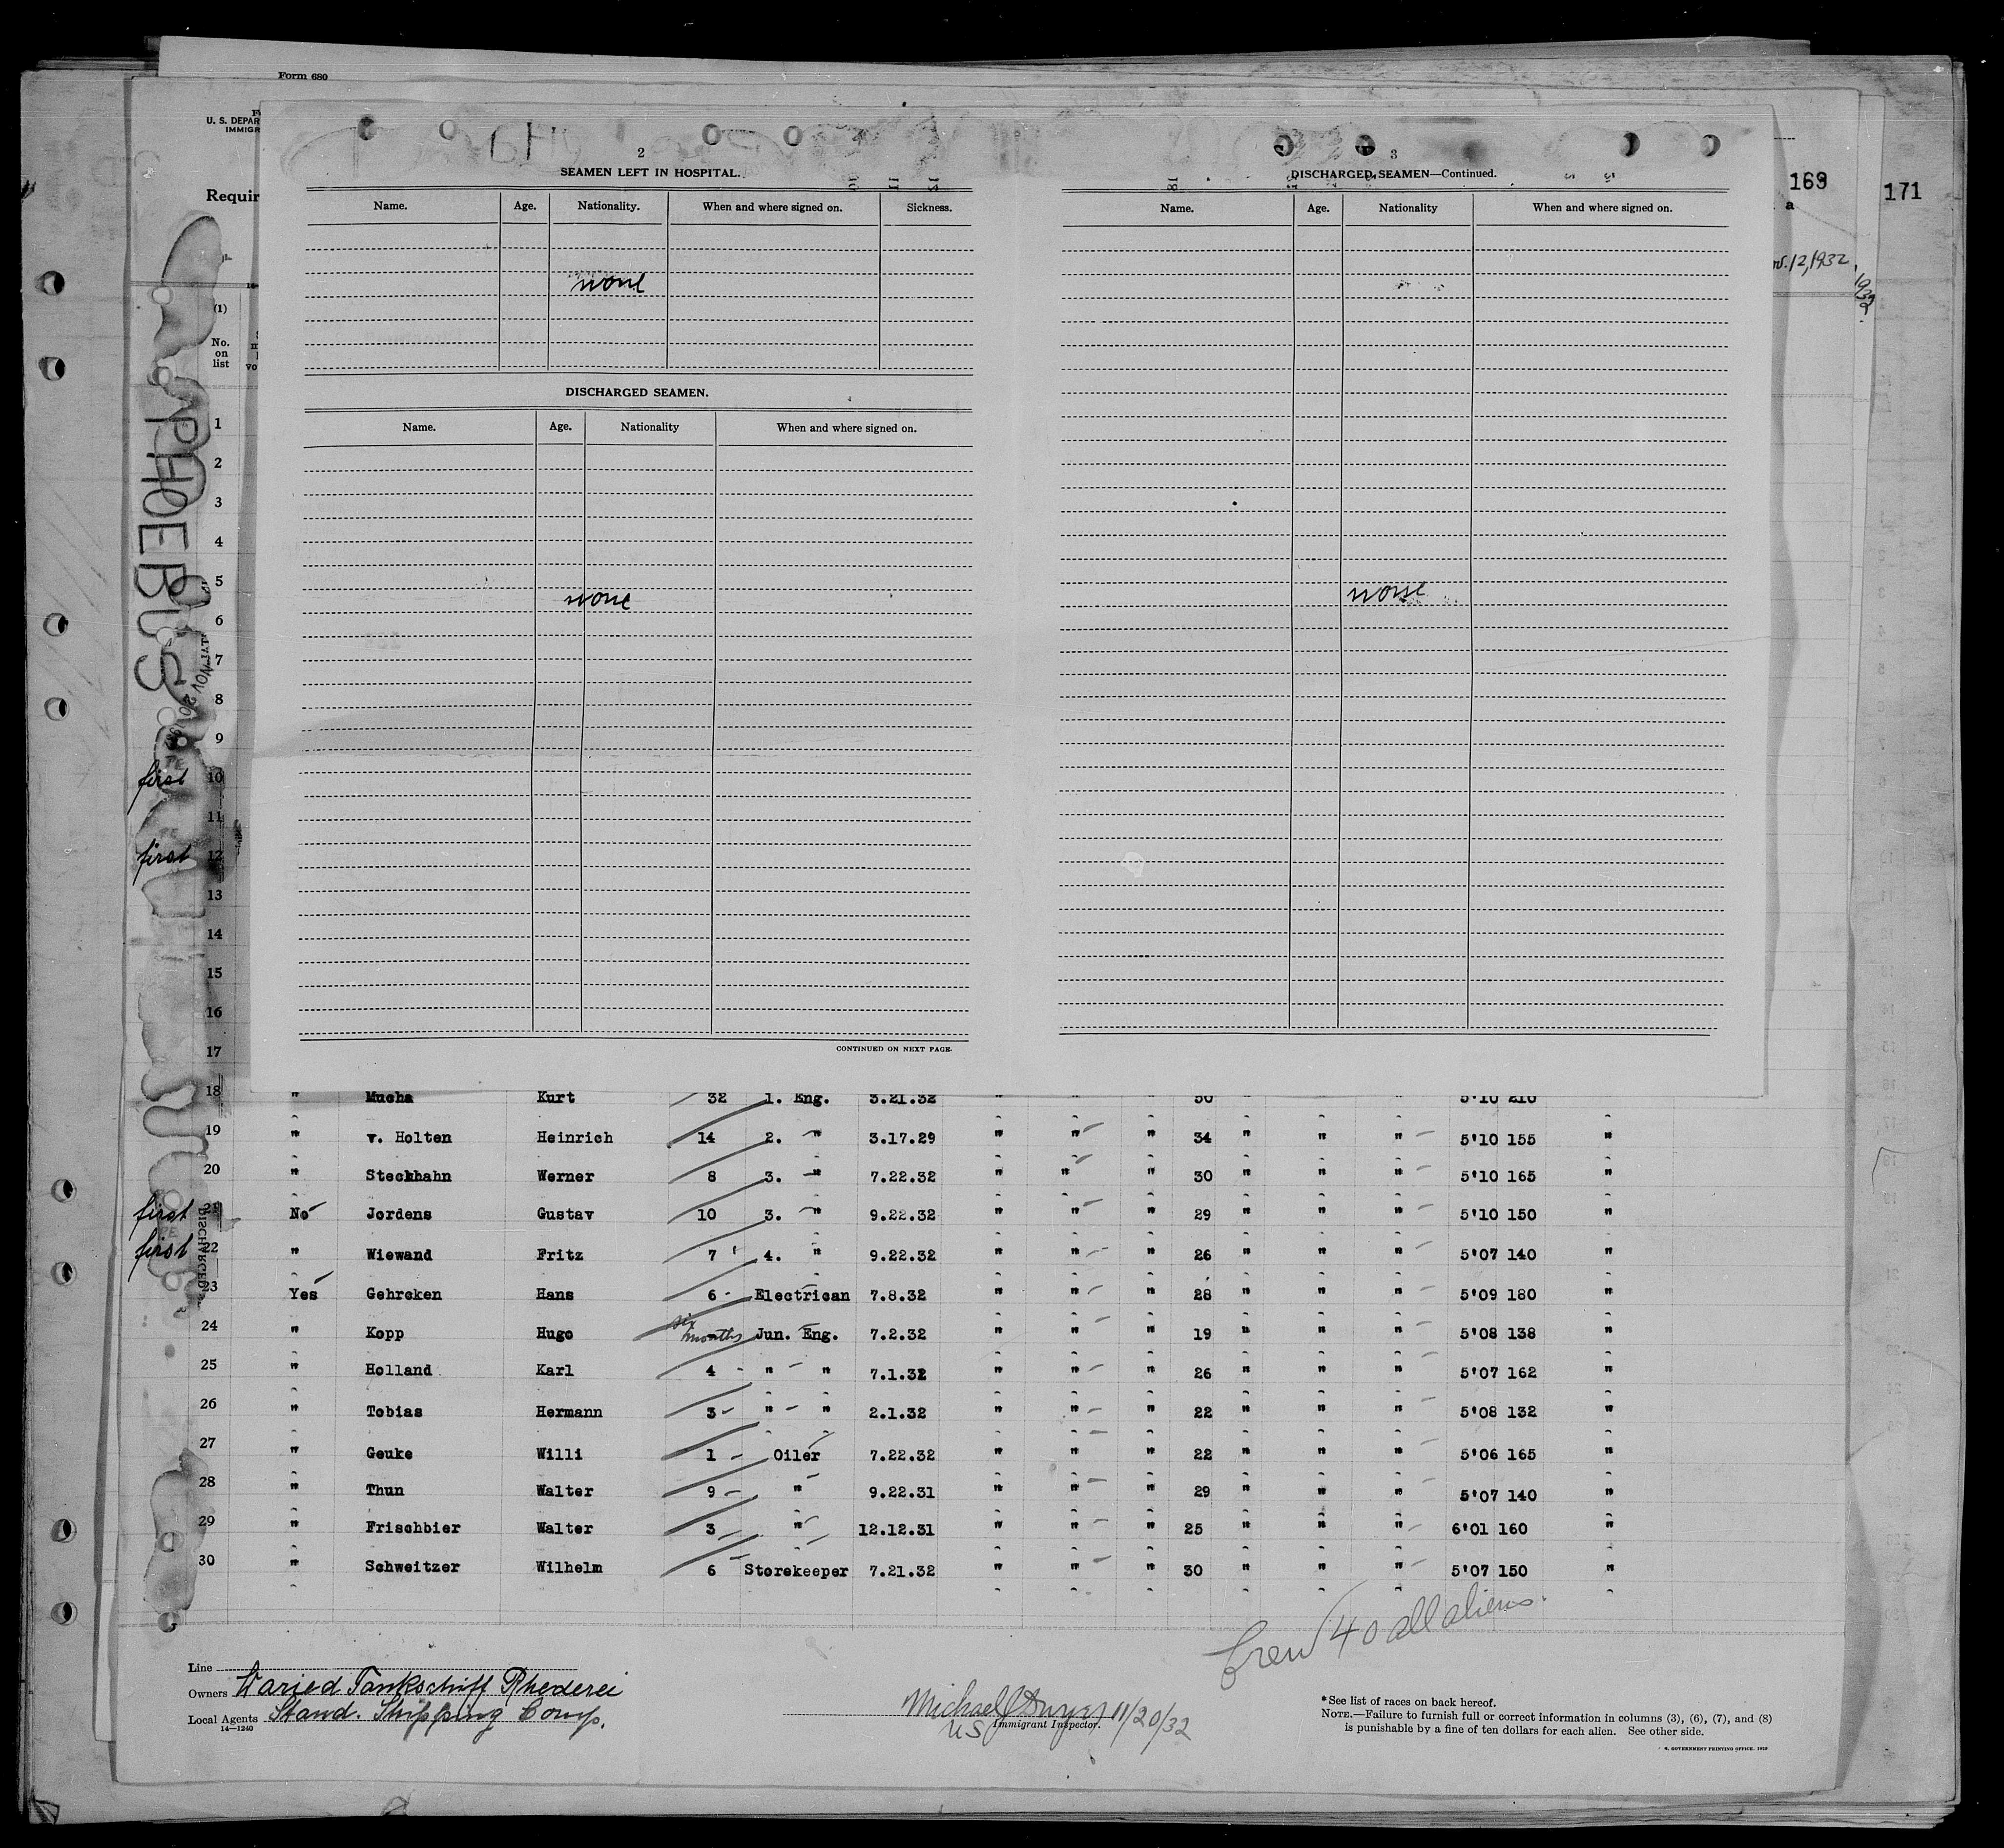 Form 680
U. S. DEPAR
IMMIGR
Requir
169
171
a
12, 1932
1932
(1)
No.
on
list
PHOEBUS
2
SEAMEN LEFT IN HOSPITAL.
Name. Age. Nationality. When and where signed on. Sickness.
none
DISCHARGED SEAMEN.
Name. Age. Nationality When and where signed on.
none
CONTINUED ON NEXT PAGE.
3
DISCHARGED SEAMEN—Continued.
Name. Age. Nationality When and where signed on.
none
1
2
3
4
5
6
7
8
9
first 10
11
first 12
13
14
15
16
17
18 " Mucha Kurt 32 1. Eng. 3.21.32 " " " 30 " " " 5'10 210
19 " v. Holten Heinrich 14 2. " 3.17.29 " " " 34 " " " 5'10 155 "
20 " Steckhahn Werner 8 3. " 7.22.32 " " " 30 " " " 5'10 165 "
first 21 No Jordens Gustav 10 3. " 9.22.32 " " " 29 " " " 5'10 150 "
first 22 " Wiewand Fritz 7 4. " 9.22.32 " " " 26 " " " 5'07 140 "
23 Yes Gehrcken Hans 6 - Electrican 7.8.32 " " " 28 " " " 5'09 180 "
24 " Kopp Hugo six months Jun. Eng. 7.2.32 " " " 19 " " " 5'08 138 "
25 " Holland Karl 4 - " - " 7.1.32 " " " 26 " " " 5'07 162 "
26 " Tobias Hermann 3 - " - " 2.1.32 " " " 22 " " " 5'08 132 "
27 " Geuke Willi 1 - Oiler 7.22.32 " " " 22 " " " 5'06 165 "
28 " Thun Walter 9 - " 9.22.31 " " " 29 " " " 5'07 140 "
29 " Frischbier Walter 3 " 12.12.31 " " " 25 " " " 6'01 160 "
30 " Schweitzer Wilhelm 6 Storekeeper 7.21.32 " " " 30 " " " 5'07 150 "
DISCHARGED
Crew 40 all aliens.
Line
Owners Waried Tankschiff Rhederei
Local Agents Stand. Shipping Comp.
14—1240
Michael Dwyer 11/20/32
US Immigrant Inspector.
* See list of races on back hereof.
NOTE.—Failure to furnish full or correct information in columns (3), (6), (7), and (8)
is punishable by a fine of ten dollars for each alien. See other side.
GOVERNMENT PRINTING OFFICE.